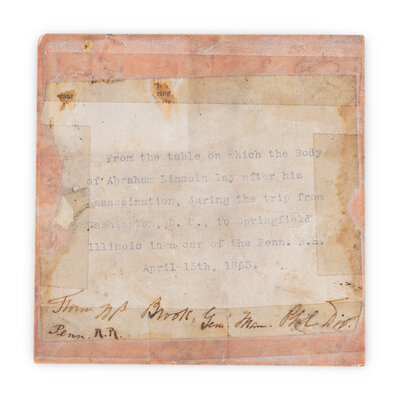 From the table on which the Body
of Abraham Lincoln lay after his
assassination, during the trip from
Washington, D. C., to Springfield
Illinois in a car of the Penn. R.R.
April 15th, 1865.
From Brook, Gen. Man. Phil Div.
Penn. R.R.